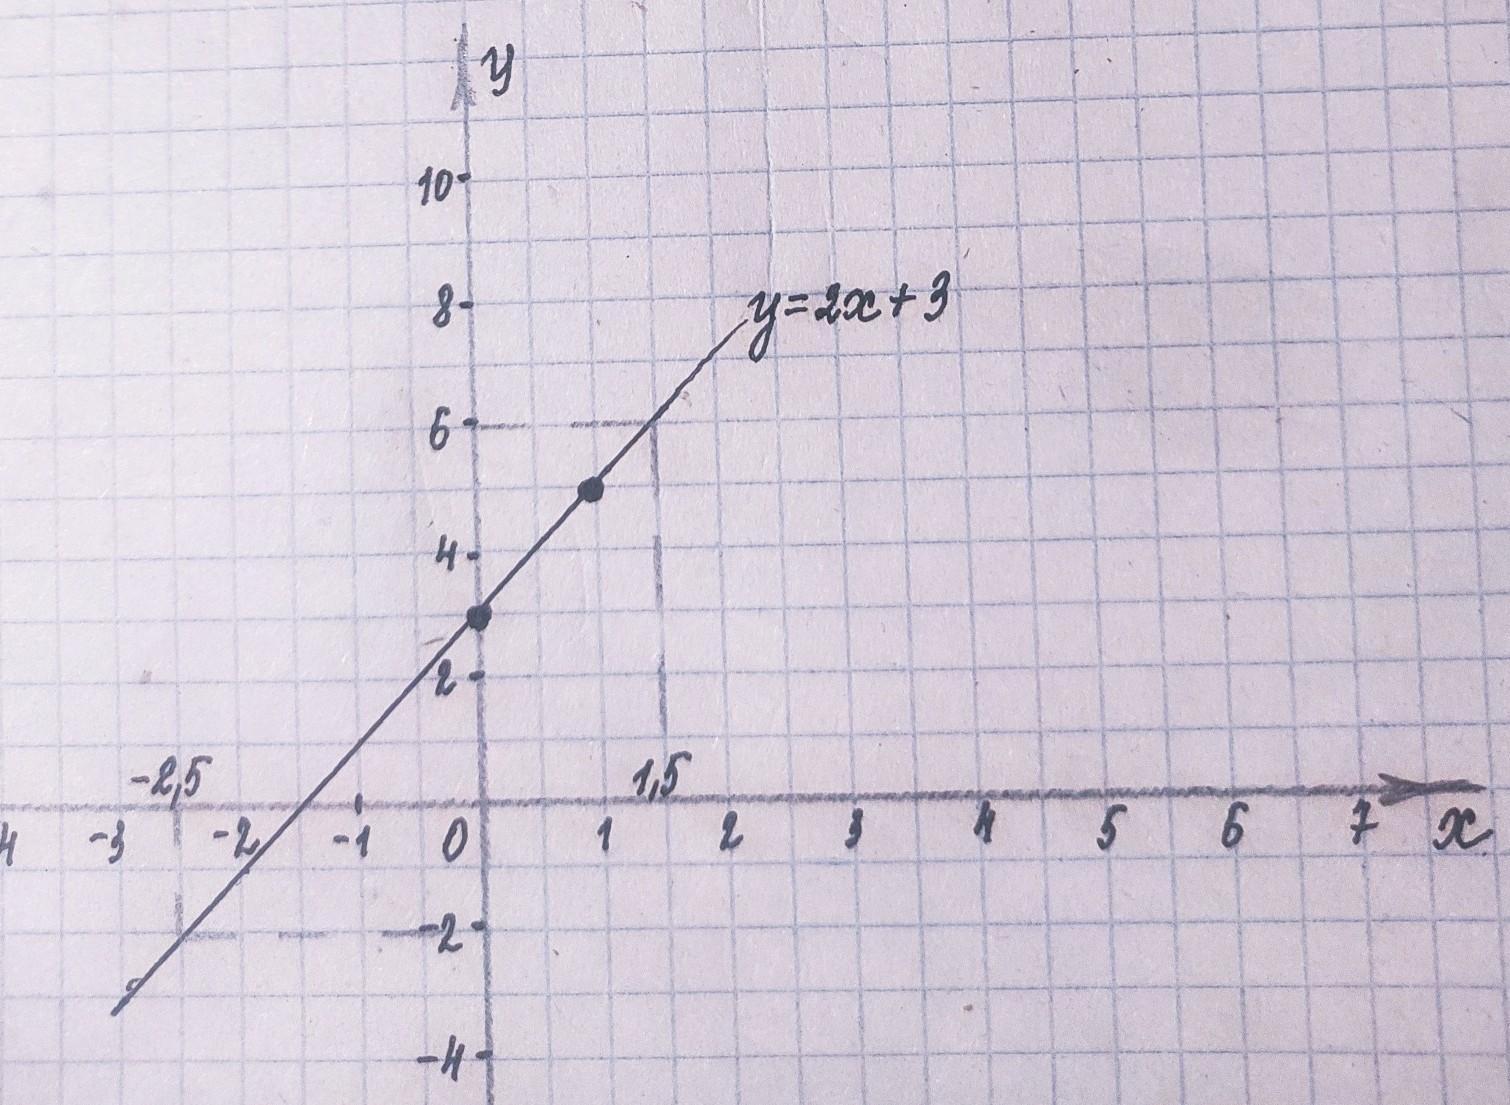 y
10
8
y=2x+3
6
4
2
-2,5 1,5
4 -3 -2 -1 0 1 2 3 4 5 6 7 x
-2
-4